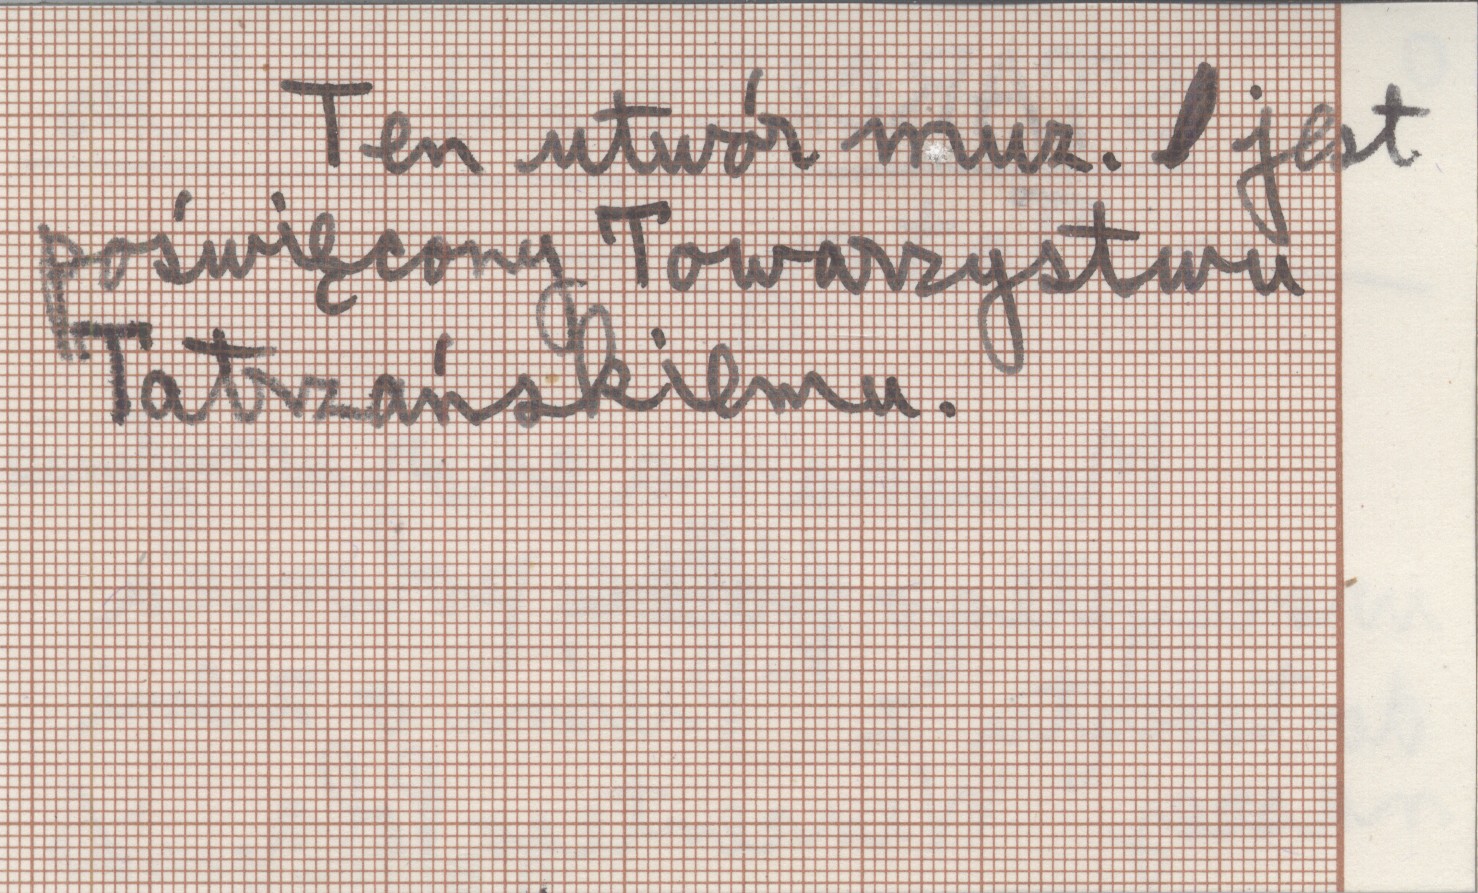 Ten utwór muz. jest
poświęcony Towarzystwu
Tatrzańskiemu.